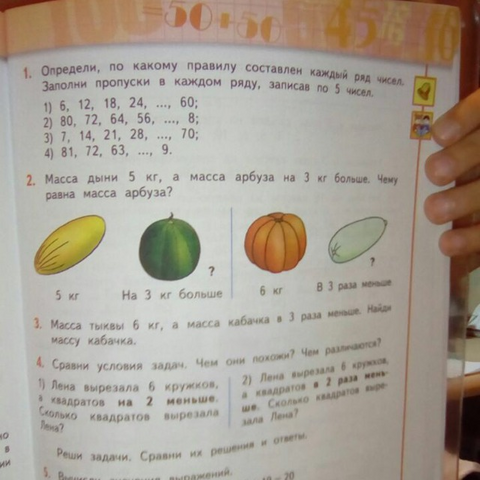 =50+50 45
1. Определи, по какому правилу составлен каждый ряд чисел.
Заполни пропуски в каждом ряду, записав по 5 чисел.
1) 6, 12, 18, 24, ..., 60;
2) 80, 72, 64, 56, ..., 8;
3) 7, 14, 21, 28, ..., 70;
4) 81, 72, 63, ..., 9.
2. Масса дыни 5 кг, а масса арбуза на 3 кг больше. Чему
равна масса арбуза?
? ?
5 кг На 3 кг больше 6 кг В 3 раза меньше
3. Масса тыквы 6 кг, а масса кабачка в 3 раза меньше. Найди
массу кабачка.
4. Сравни условия задач. Чем они похожи? Чем различаются?
1) Лена вырезала 6 кружков,
а квадратов на 2 меньше.
Сколько квадратов вырезала
Лена?
2) Лена вырезала 6 кружков,
а квадратов в 2 раза мень-
ше. Сколько квадратов выре-
зала Лена?
Реши задачи. Сравни их решения и ответы.
5. выражений.